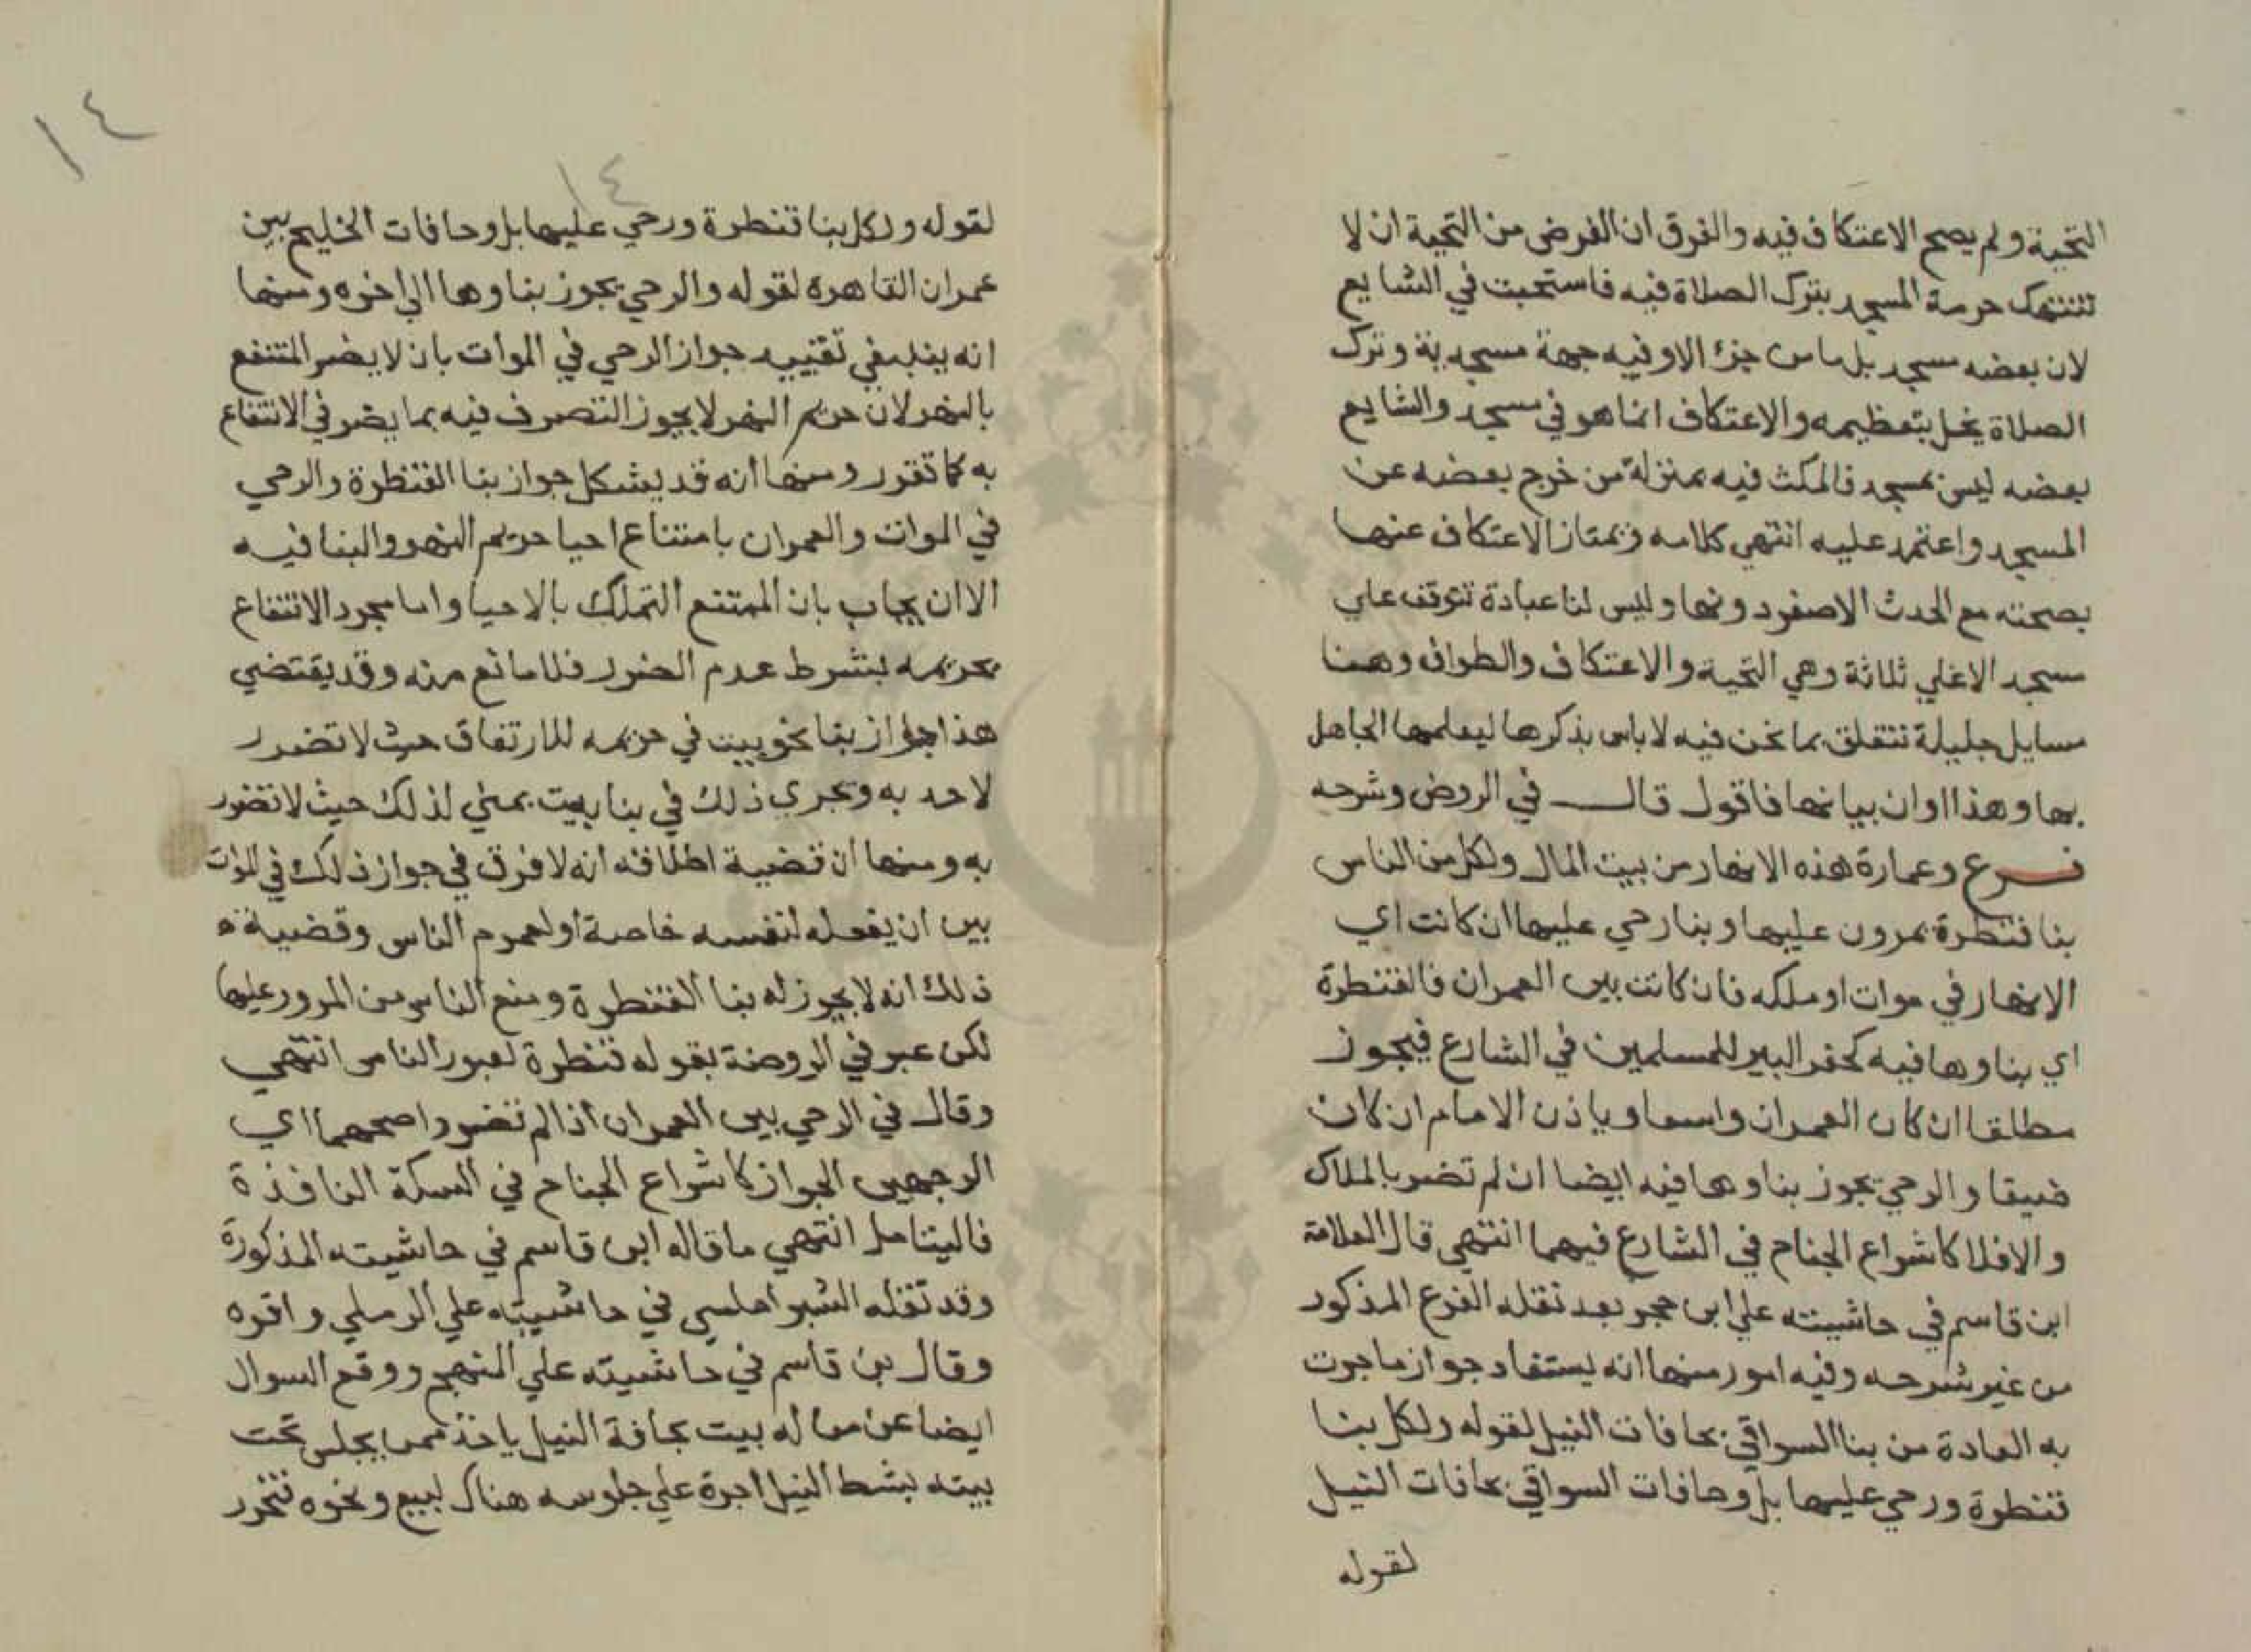 التحية ولم يصح الاعتكاف فيه والفرق ان الغرض من التحية ان لا
تنتهك حرمة المسجد بترك الصلاة فيه فاستحبت في الشايع
لان بعضه مسجد بل ما من جزء الا وفيه جهة مسجدية وترك
الصلاة يخل بتعظيمه والاعتكاف انما هو في مسجد والشايع
بعضه ليس بمسجد فالمكث فيه بمنزلة من خرج بعضه عن
المسجد واعتمد عليه انتهي كلامه ويمتاز الاعتكاف عنها
بصحته مع الحدث الاصغر دونها وليس لنا عبادة تتوقف علي
مسجد الا علي ثلاثة وهي التحية والاعتكاف والطواف وهنا
مسايل جليلة تتعلق بما نحن فيه لا باس بذكرها ليعلمها الجاهل
بها وهذا اوان بيانها فاقول قال في الروض وشرحه
فرع وعمارة هذه الانهار من بيت المال ولكل من الناس
بنا قنطرة يمرون عليها وبنا رحي عليها ان كانت اي
الانهار في موات او ملكه فان كانت بين العمران فالقنطرة
اي بناوها فيه كحفر البير للمسلمين في الشارع فيجوز
مطلقا ان كان العمران واسعا وباذن الامام ان كان
ضيقا والرحي يجوز بناوها فيه ايضا ان لم تضر بالملاك
والا فلا كاشراع الجناح في الشارع فيهما انتهي قال العلامة
ابن قاسم في حاشيته علي ابن حجر بعد نقله الفرع المذكور
من غير شرحه وفيه امور منها انه يستفاد جواز ما جرت
به العادة من بنا السواقي بحافات النيل لقوله ولكل بنا
قنطرة ورحي عليها بل وحافات السواقي بحافات النيل
لقوله
١٤
١٤
لقوله ولكل بنا قنطرة ورحي عليها بل وحافات الخليج بين
عمران القاهرة لقوله والرحي يجوز بناوها الي اخره ومنها
انه ينبغي تقييد جواز الرحي في الموات بان لا يضر المنتفع
بالنهر لان حريم النهر لا يجوز التصرف فيه بما يضر في الانتفاع
به كما تقرر ومنها أنه قد يشكل جواز بنا القنطرة والرحي
في الموات والعمران بامتناع احيا حريم النهر والبنا فيه
الا ان يجاب بان الممتنع التملك بالاحيا واما مجرد الانتفاع
بحريمه بشرط عدم الضرر فلا مانع منه وقد يقتضي
هذا جواز بنا نحو بيت في حريمه للارتفاق حيث لا تضرر
لاحد به ويجري ذلك في بنا بيت بمني لذلك حيث لا تضرر
به ومنها ان قضية اطلاقه انه لا فرق في جواز ذلك في الموات
بين ان يفعله لنفسه خاصة او لعموم الناس وقضية
ذلك انه لا يجوز له بنا القنطرة ومنع الناس من المرور عليها
لكن عبر في الروضة بقوله قنطرة لعبور الناس انتهي
وقال في الرحي بين العمران اذا لم تضر واصحهما اي
الوجهين الجواز كاشراع الجناح في السكة النافذة
فاليتامل انتهي ما قاله ابن قاسم في حاشيته المذكورة
وقد نقله الشبراملسي في حاشيته علي الرملي واقره
وقال بن قاسم في حاشيته علي المنهج ووقع السوال
ايضا عن من له بيت بحافة النيل ياخذ ممن يجلس تحت
بيته بشط النيل اجرة علي جلوسه هناك لبيع ونحوه فتحرر